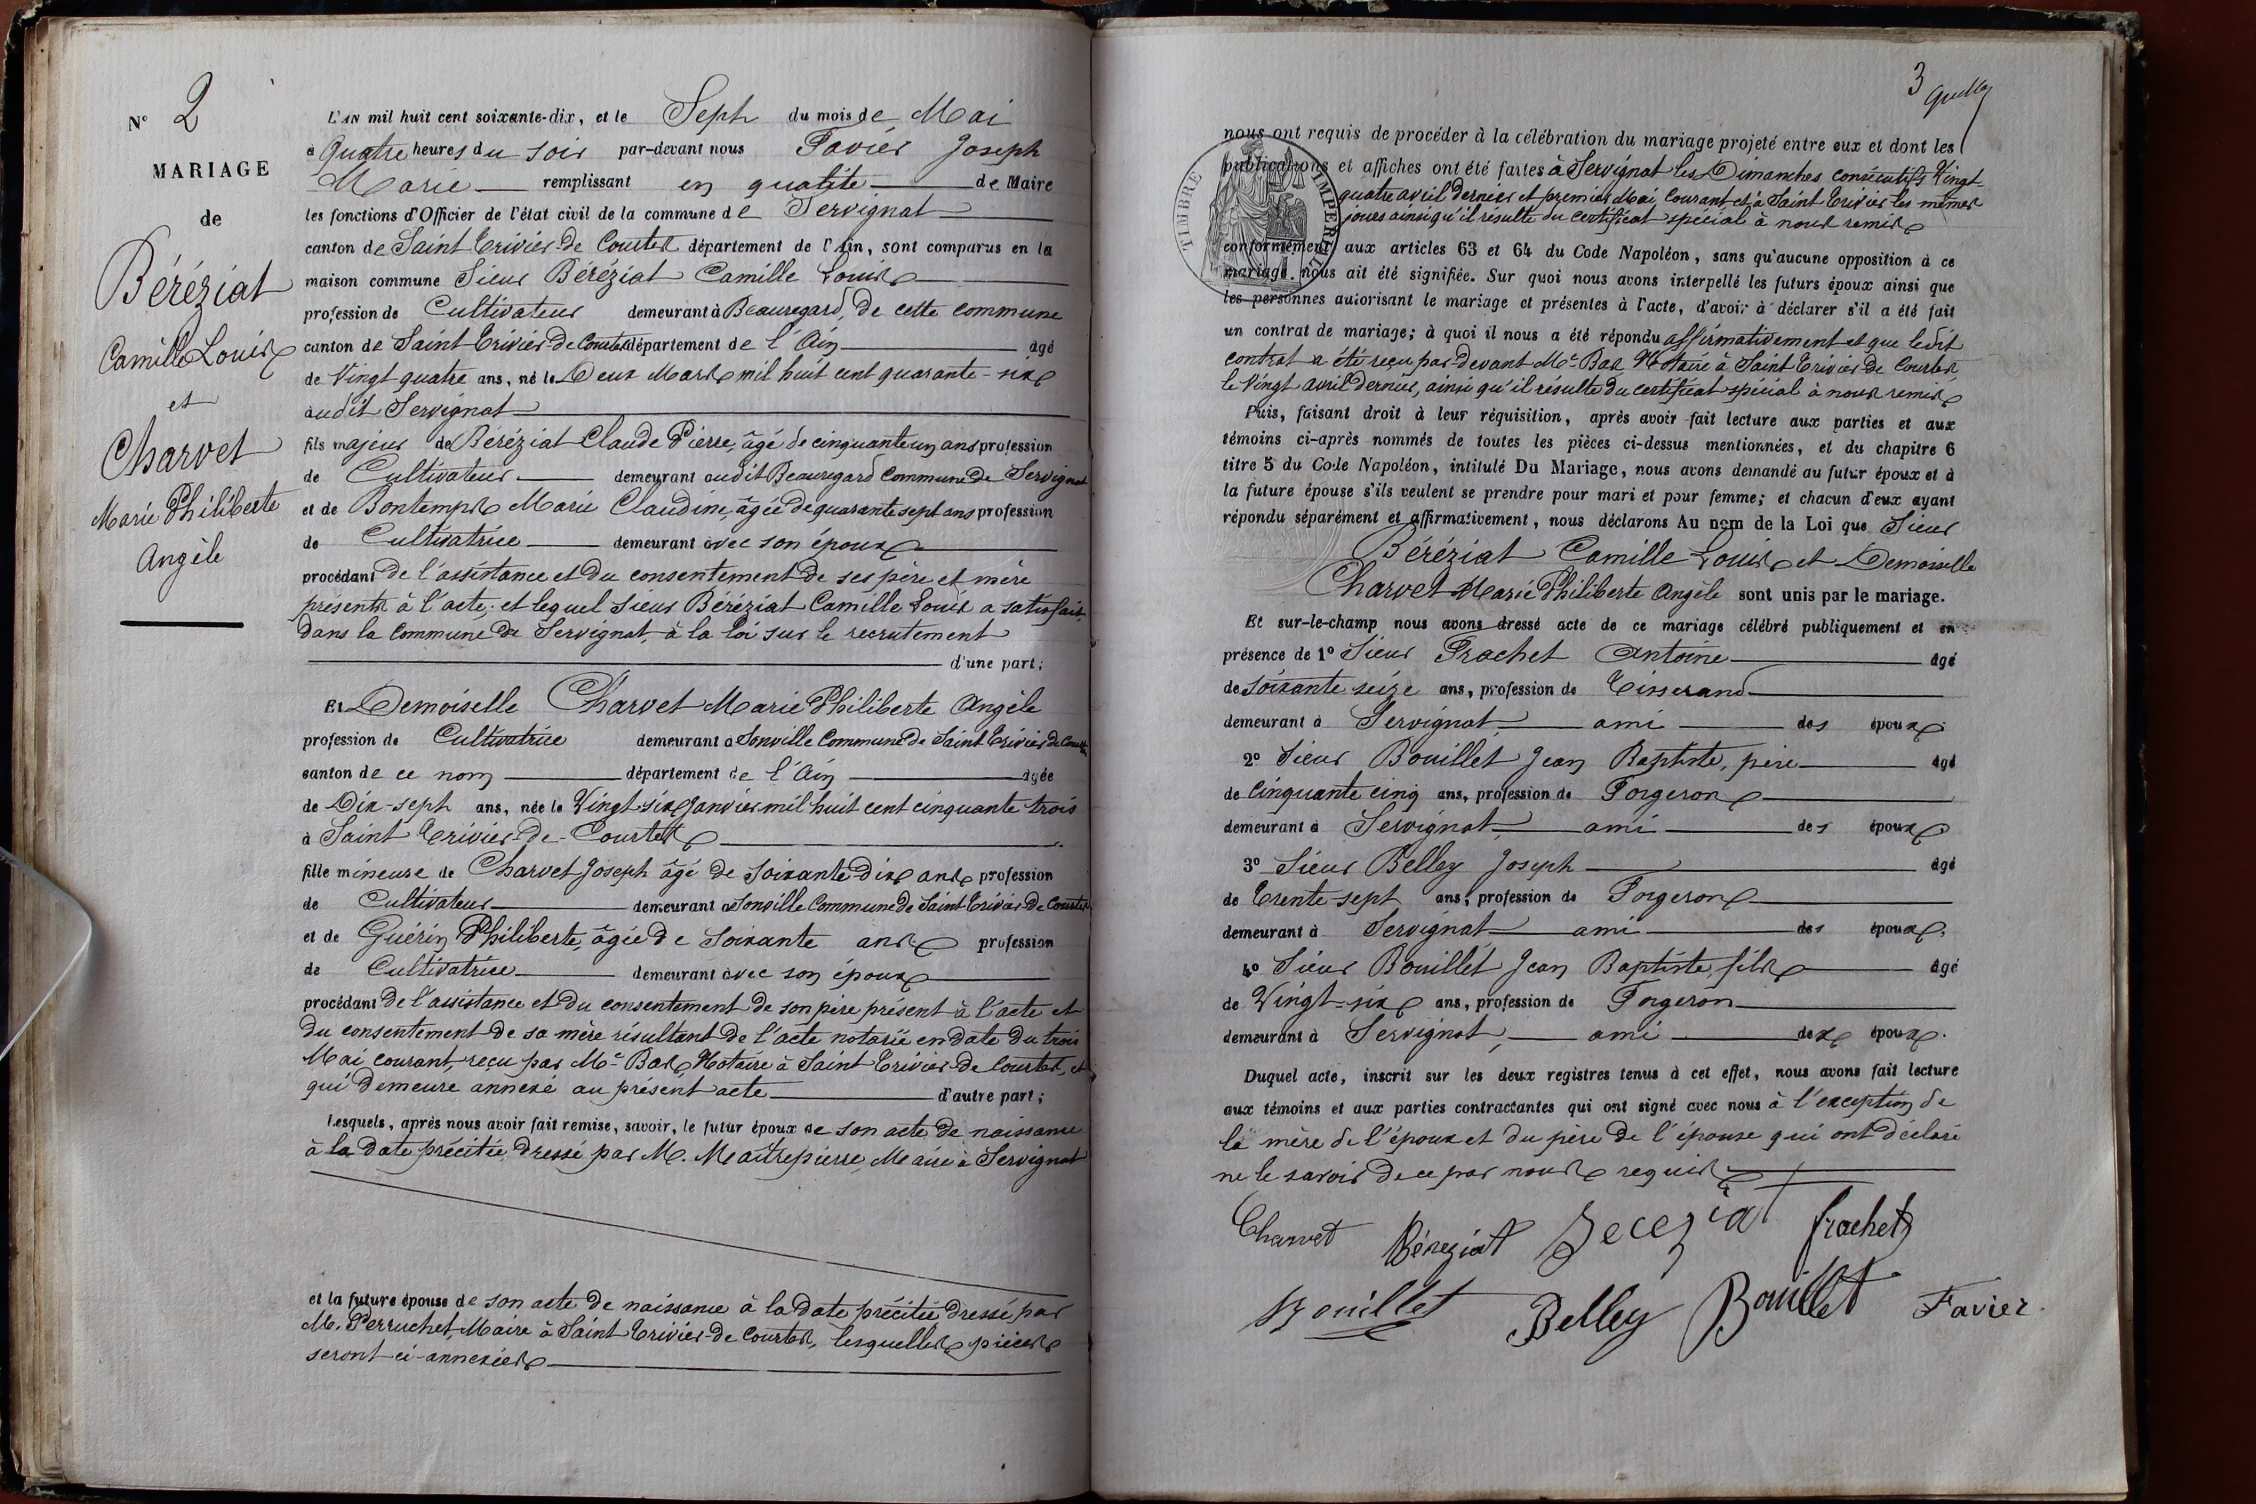 N° 2
MARIAGE
de
Béréziat
Camille Louis
et
Charvet
Marie Philiberte
Angèle
L'AN mil huit cent soixante-dix, et le Sept du mois de Mai
à Quatre heures du soir par-devant nous Favier Joseph
Marie remplissant en qualité de Maire
les fonctions d'Officier de l'état civil de la commune de Servignat
canton de Saint Trivier-de Courtes département de l'Ain, sont comparus en la
maison commune Sieur Béréziat Camille Louis
profession de Cultivateur demeurant à Beauregard, de cette commune
canton de Saint Trivier-de Courtes département de l'Ain âgé
de Vingt quatre ans, né le Deux Mars mil huit cent quarante-six
audit Servignat
fils majeur de Béréziat Claude Pierre, âgé de cinquante un ans profession
de Cultivateur demeurant audit Beauregard commune de Servignat
et de Bontemps Marie Claudine, âgée de quarante sept ans profession
de Cultivatrice demeurant avec son époux
procédant de l'assistance et du consentement de ses père et mère
présents à l'acte; et lequel sieur Béréziat Camille Louis a satisfait,
dans la commune de Servignat, à la loi sur le recrutement
d'une part;
Et Demoiselle Charvet Marie Philiberte Angèle
profession de Cultivatrice demeurant à Sonville Commune de Saint Trivier de Courtes
canton de ce nom département de l'Ain âgée
de Dix-sept ans, née le Vingt-six Janvier mil huit cent cinquante trois
à Saint Trivier-de-Courtes
fille mineure de Charvet Joseph âgé de soixante dix ans profession
de Cultivateur demeurant à Sonville Commune de Saint Trivier de Courtes
et de Guérin Philiberte, âgée de soixante ans profession
de Cultivatrice demeurant avec son époux
procédant de l'assistance et du consentement de son père présent à l'acte et
du consentement de sa mère résultant de l'acte notarié en date du trois
Mai courant, reçu par Me Bas, Notaire à Saint Trivier-de Courtes, et
qui demeure annexé au présent acte d'autre part;
Lesquels, après nous avoir fait remise, savoir, le futur époux de son acte de naissance
à la date précitée, dressé par M. Maîtrepierre, Maire à Servignat
et la future épouse de son acte de naissance à la date précitée dressé par
M. Perruchet, Maire à Saint Trivier-de Courtes, lesquelles pièces
seront ci-annexées
3
nous ont requis de procéder à la célébration du mariage projeté entre eux et dont les
publications et affiches ont été faites à Servignat les Dimanches consécutifs Vingt-
quatre avril dernier et premier Mai courant et à Saint Trivier les mêmes
jours ainsi qu'il résulte du certificat spécial à nous remis
TIMBRE IMPERIAL
conformément aux articles 63 et 64 du Code Napoléon, sans qu'aucune opposition à ce
mariage nous ait été signifiée. Sur quoi nous avons interpellé les futurs époux ainsi que
les personnes autorisant le mariage et présentes à l'acte, d'avoir à déclarer s'il a été fait
un contrat de mariage; à quoi il nous a été répondu affirmativement et que ledit
contrat a été reçu par-devant Me Bas Notaire à Saint Trivier de Courtes
le Vingt avril dernier, ainsi qu'il résulte du certificat spécial à nous remis
Puis, faisant droit à leur réquisition, après avoir fait lecture aux parties et aux
témoins ci-après nommés de toutes les pièces ci-dessus mentionnées, et du chapitre 6
titre 5 du Code Napoléon, intitulé Du Mariage, nous avons demandé au futur époux et à
la future épouse s'ils veulent se prendre pour mari et pour femme; et chacun d'eux ayant
répondu séparément et affirmativement, nous déclarons Au nom de la Loi que Sieur
Béréziat Camille Louis et Demoiselle
Charvet Marie Philiberte Angèle sont unis par le mariage.
Et sur-le-champ nous avons dressé acte de ce mariage célébré publiquement et en
présence de 1° Sieur Frachet Antoine âgé
de soixante seize ans, profession de Tisserand
demeurant à Servignat ami des époux
2° Sieur Bouillet Jean Baptiste, père âgé
de cinquante cinq ans, profession de Forgeron
demeurant à Servignat ami des époux
3° Sieur Belley Joseph âgé
de Trente-sept ans, profession de Forgeron
demeurant à Servignat ami des époux
4° Sieur Bouillet Jean Baptiste, fils âgé
de Vingt-six ans, profession de Forgeron
demeurant à Servignat, ami des époux.
Duquel acte, inscrit sur les deux registres tenus à cet effet, nous avons fait lecture
aux témoins et aux parties contractantes qui ont signé avec nous à l'exception de
la mère de l'époux et du père de l'épouse qui ont déclaré
ne le savoir de ce par nous requis
Charvet Béréziat Bereziat frachet
Bouillet Belley Bouillet Favier